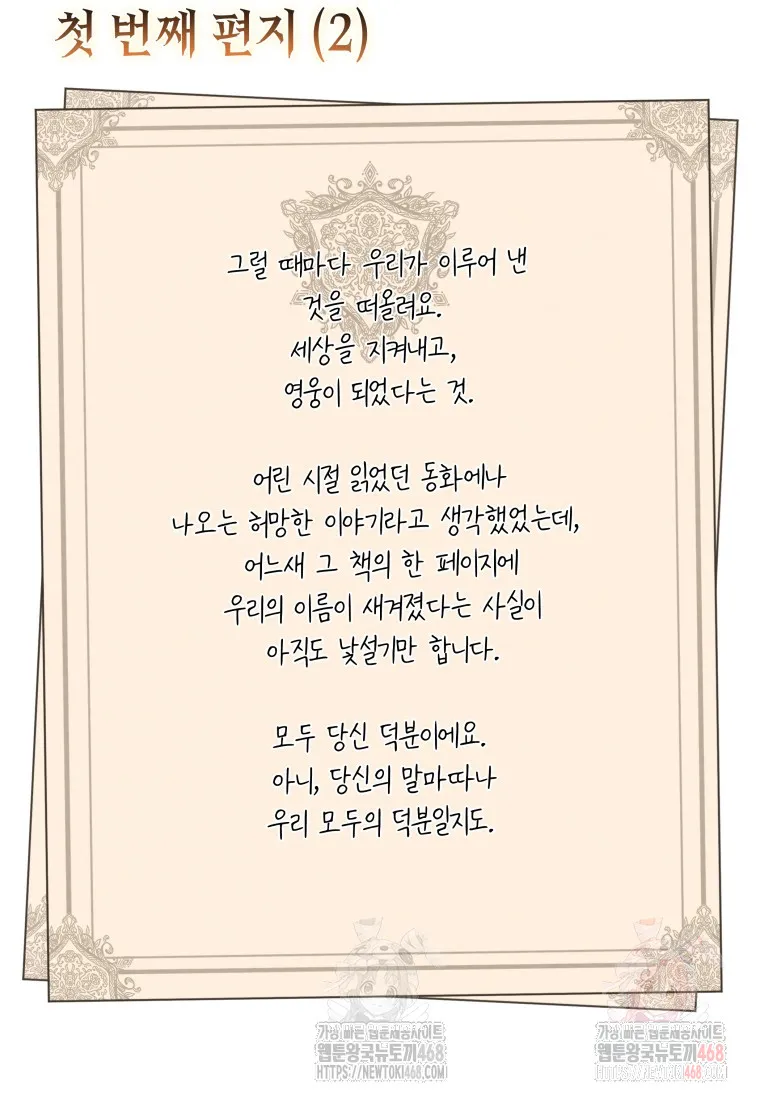 첫 번째 편지 (2)
그럴 때마다 우리가 이루어 낸
것을 떠올려요.
세상을 지켜내고,
영웅이 되었다는 것.
어린 시절 읽었던 동화에나
나오는 허망한 이야기라고 생각했었는데,
어느새 그 책의 한 페이지에
우리의 이름이 새겨졌다는 사실이
아직도 낯설기만 합니다.
모두 당신 덕분이에요.
아니, 당신의 말마따나
우리 모두의 덕분일지도.
가장 빠른 웹툰제공사이트
웹툰왕국뉴토끼468
HTTPS://NEWTOKI468.COM
가장 빠른 웹툰제공사이트
웹툰왕국뉴토끼468
HTTPS://NEWTOKI468.COM